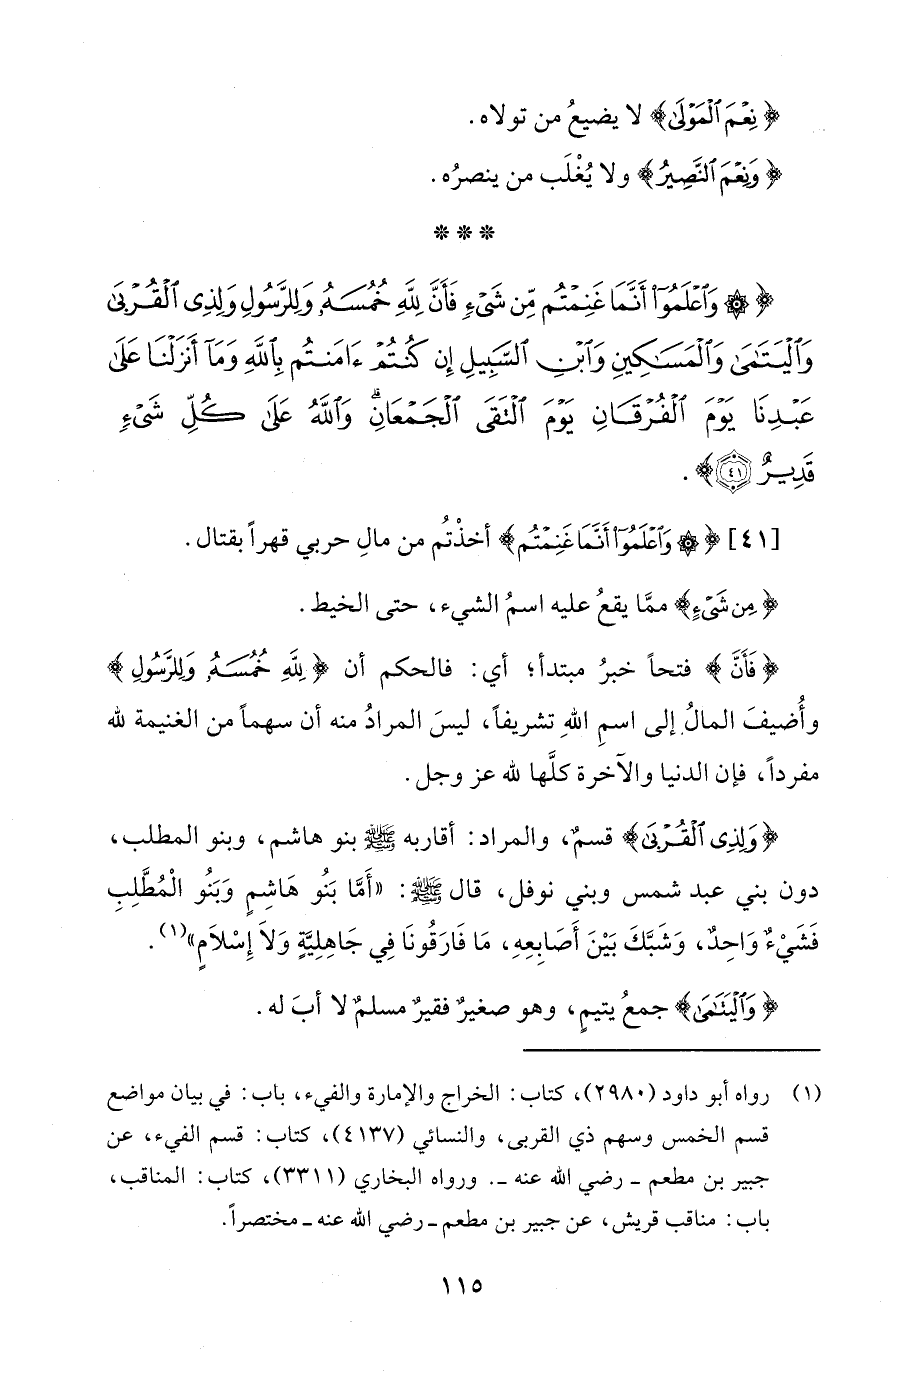 ﴿ نِعْمَ ٱلْمَوْلَىٰ﴾ لا يضيعُ من تولاه.
﴿ وَنِعْمَ ٱلنَّصِيرُ﴾ ولا يُغْلَب من ينصرُه.
***
﴿ ۞ وَٱعْلَمُوٓا۟ أَنَّمَا غَنِمْتُم مِّن شَىْءٍ فَأَنَّ لِلَّهِ خُمُسَهُۥ وَلِلرَّسُولِ وَلِذِى ٱلْقُرْبَىٰ
وَٱلْيَتَٰمَىٰ وَٱلْمَسَٰكِينِ وَٱبْنِ ٱلسَّبِيلِ إِن كُنتُمْ ءَامَنتُم بِٱللَّهِ وَمَآ أَنزَلْنَا عَلَىٰ
عَبْدِنَا يَوْمَ ٱلْفُرْقَانِ يَوْمَ ٱلْتَقَى ٱلْجَمْعَانِۗ وَٱللَّهُ عَلَىٰ كُلِّ شَىْءٍ
قَدِيرٌ ٤١﴾ .
[٤١] ﴿ ۞ وَٱعْلَمُوٓا۟ أَنَّمَا غَنِمْتُم﴾ أخذْتُم من مالِ حربي قهراً بقتال.
﴿ مِن شَىْءٍ﴾ ممَّا يقعُ عليه اسمُ الشيء، حتى الخيط.
﴿فَأَنَّ ﴾ فتحاً خبرُ مبتدأ؛ أي: فالحكم أن ﴿ لِلَّهِ خُمُسَهُۥ وَلِلرَّسُولِ ﴾
وأُضيفَ المالُ إلى اسمِ اللهِ تشريفاً، ليسَ المرادُ منه أن سهماً من الغنيمة لله
مفرداً، فإن الدنيا والآخرة كلَّها لله عز وجل.
﴿وَلِذِى ٱلْقُرْبَىٰ﴾ قسمٌ، والمراد: أقاربه ﷺ بنو هاشم، وبنو المطلب،
دون بني عبد شمس وبني نوفل، قال ﷺ: «أَمَّا بَنُو هَاشِمٍ وَبَنُو الْمُطَّلِبِ
فَشَيْءٌ وَاحِدٌ، وَشَبَّكَ بَيْنَ أَصَابِعِهِ، مَا فَارَقُونَا فِي جَاهِلِيَّةٍ وَلاَ إِسْلاَمٍ»(١).
﴿ وَٱلْيَتَٰمَىٰ﴾ جمعُ يتيمٍ، وهو صغيرٌ فقيرٌ مسلمٌ لا أبَ له.
(١) رواه أبو داود (٢٩٨٠)، كتاب: الخراج والإمارة والفيء، باب: في بيان مواضع
قسم الخمس وسهم ذي القربى، والنسائي (٤١٣٧)، كتاب: قسم الفيء، عن
جبير بن مطعم ـ رضي الله عنه ـ. ورواه البخاري (٣٣١١)، كتاب: المناقب،
باب: مناقب قريش، عن جبير بن مطعم ـ رضي الله عنه ـ مختصراً.
١١٥